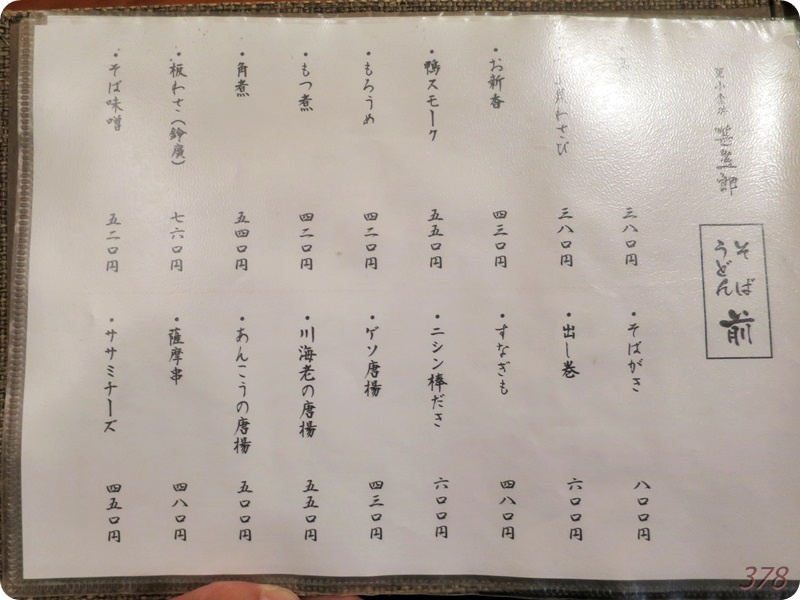 そば
うどん
前
三八〇円
わさび 三八〇円
・お新香 四三〇円
・鴨スモーク 五五〇円
・もろうめ 四二〇円
・もつ煮 四二〇円
・角煮 五四〇円
・板わさ(鈴廣) 七六〇円
・そば味噌 五二〇円
・そばがき 八〇〇円
・出し巻 六〇〇円
・すなぎも 四八〇円
・ニシン棒だき 六〇〇円
・ゲソ唐揚 四三〇円
・川海老の唐揚 五五〇円
・あんこうの唐揚 五〇〇円
・薩摩串 四八〇円
・ササミチーズ 四五〇円
378